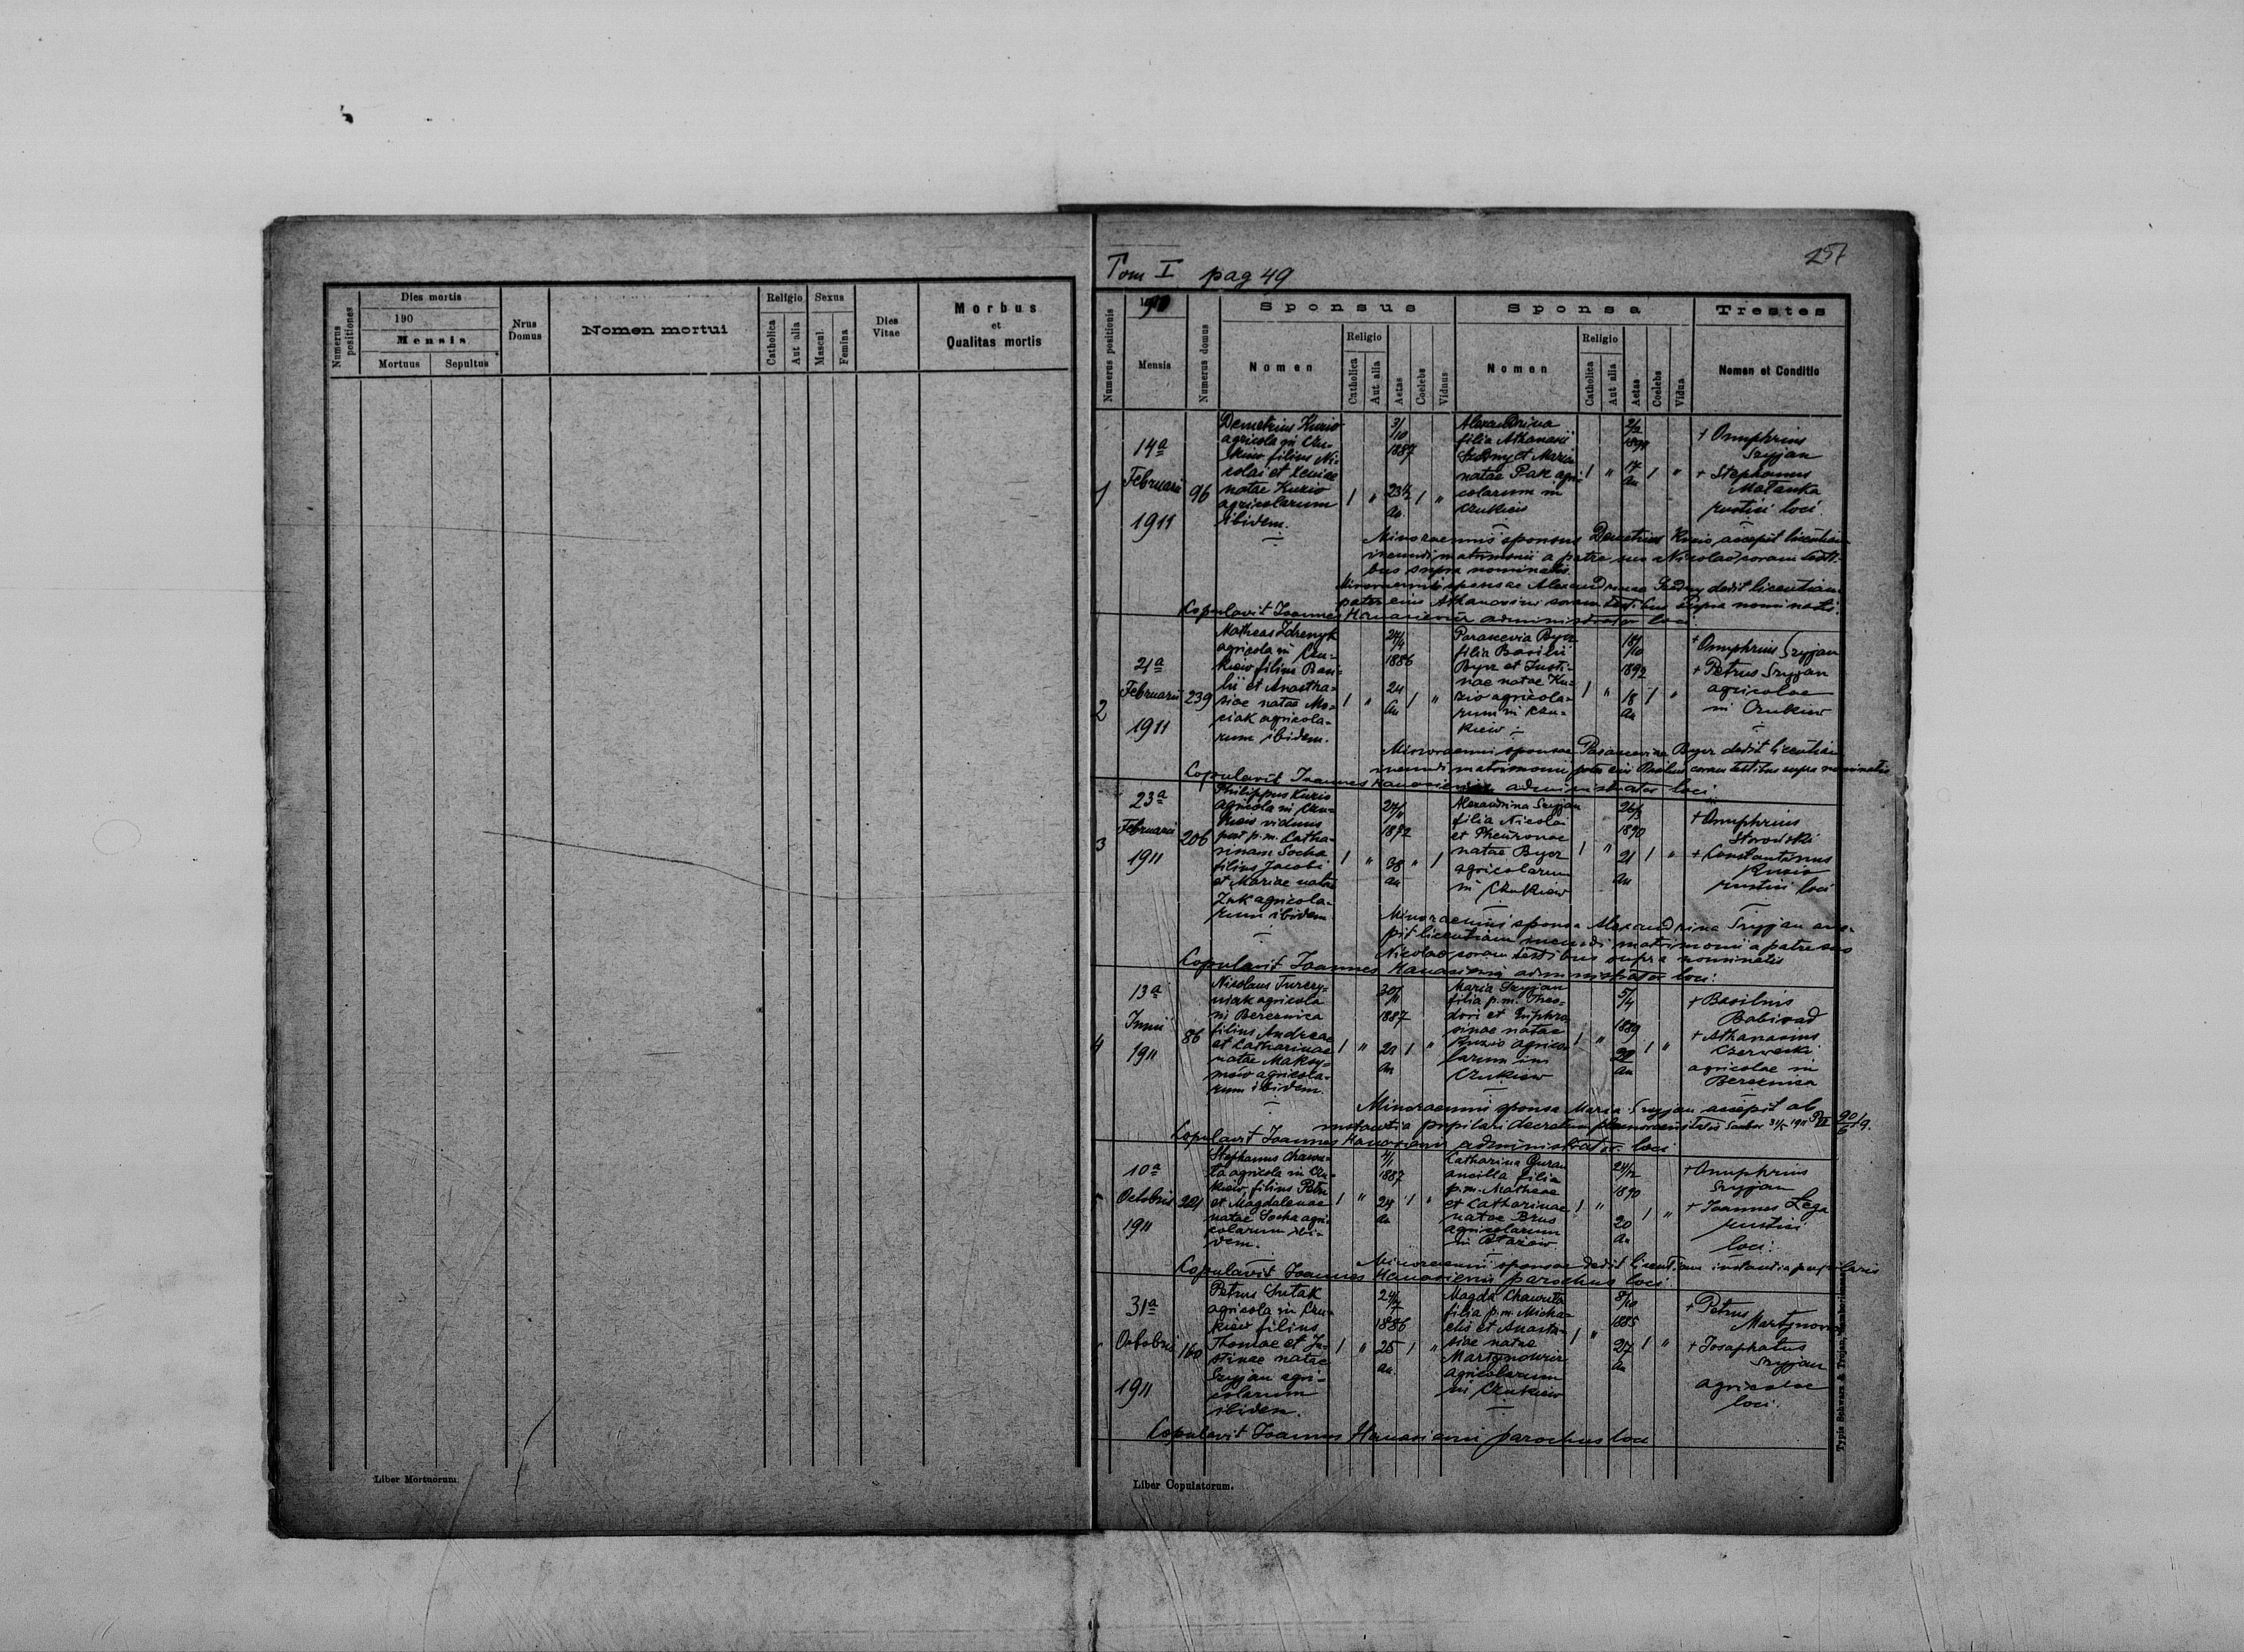 Numerus positiones
Dies mortis
190
Mensis
Mortuus
Sepultus
Nrus Domus
Nomen mortui
Religio
Catholica
Aut alia
Sexus
Mascul.
Femina
Dies Vitae
Morbus
et
Qualitas mortis
Liber Mortuorum.
257
Tom I pag 49
Numerus positionis
Mensis
Numerus domus
Sponsus
Nomen
Religio
Catholica
Aut alia
Aetas
Coelebs
Viduus
Sponsa
Nomen
Religio
Catholica
Aut alia
Aetas
Coelebs
Vidua
Trestes
Nomen et Conditio
1
14a
Februarii
1911
96
Demetrius Kuzio
agricola in Czu-
kiew filius Ni-
colai et Xeniae
natae Kuzio
agricolarum
ibidem.
31/10
1887
23½
an
Alexandrina
filia Athanasii
Szedny et Maria
natae Pak agri-
colarum in
Czukiew
17
an
+ Onuphrius
Szyjan
+ Stephanus
Matanka
rustici loci.
Minorennis sponsus Demetrius Kuzio accepit licentiam
ineundi matrimonii a patre suo Nicolao coram testi-
bus supra nominatis.
Minorenni sponsae Alexandrinae Szedny dedit licentiam
pater eius Athanasius coram testibus supra nominatis.
Copulavit Joannes Hanasiewicz administrator loci
2
21a
Februarii
1911
239
Matheas Zdrenyk
agricola in Czu-
kiew filius Basi-
lii et Anastha-
siae natae Mo-
ciak agricola-
rum ibidem.
27/4
1886
24
an
Parascevia Byer
filia Basilii
Byer et Justi-
nae natae Ku-
zio agricola-
rum in Czu-
kiew
18/10
1892
18
an
+ Onuphrius Szyjan
+ Petrus Szyjan
agricolae
in Czukiew
Minorenni sponsae Parascevia Byer dedit licentiam
ineundi matrimonii pater eius Basilius coram testibus supra nominatis
Copulavit Joannes Hanasiewicz administrator loci
3
23a
Februarii
1911
206
Philippus Kuzio
agricola in Czu-
kiew viduus
post p.m. Catha-
rinam Socha
filius Jacobi
et Mariae natae
Zuk agricola-
rum ibidem
27/11
1872
38
an
Alexandrina Szyjan
filia Nicolai
et Pheuronae
natae Byer
agricolarum
in Czukiew
26/3
1890
21
an
+ Onuphrius
+ Constantinus
Kuzio
rustici loci
Minorennis sponsa Alexandrina Szyjan acce-
pit licentiam ineundi matrimonii a patre suo
Nicolao coram testibus supra nominatis
Copulavit Joannes Hanasiewicz administrator loci.
4
13a
Junii
1911
86
Nicolaus Turczy-
niak agricola
in Bereznica
filius Andreae
et Catharinae
natae Maksy-
mow agricola-
rum ibidem.
30/11
1887
23
an
Maria Szyjan
filia p.m. Theo-
dori et Euphro-
sinae natae
Kuzio agrico-
larum in
Czukiew
5/4
1889
22
an
+ Basilius
Babirad
+ Athanasius
Czerwecki
agricolae in
Bereznica
Minorennis sponsa Maria Szyjan accepit ab
instantia pupilari decretum Sambor 31/5 1911 90/6
Copulavit Joannes Hanasiewicz administrator loci
10a
Octobris
1911
221
Stephanus Chawu-
ta agricola in Czu-
kiew, filius Petri
et Magdalenae
natae Socha agri-
colarum ibi-
dem.
1887
24
an
Catharina Guran
ancilla filia
p.m. Matheae
et Catharinae
natae Brus
agricolarum
in
24/12
1890
20
an
+ Onuphrius
Szyjan
+ Joannes Lega
rustici
loci.
Minorenni sponsae dedit licentiam instantia pupilaris
Copulavit Joannes Hanasiewicz parochus loci
31a
Octobris
1911
160
Petrus Sutak
agricola in Czu-
kiew filius
Thomae et Ju-
stinae natae
Szyjan agri-
colarum
ibidem.
24/7
1886
25
an
Magda Chawuta
filia p.m. Micha-
elis et Anasta-
siae natae
Martynowicz
agricolarum
in Czukiew
8/10
1885
27
an
+ Petrus
+ Josaphatus
Szyjan
agricolae
loci.
Copulavit Joannes Hanasiewicz parochus loci
Liber Copulatorum.